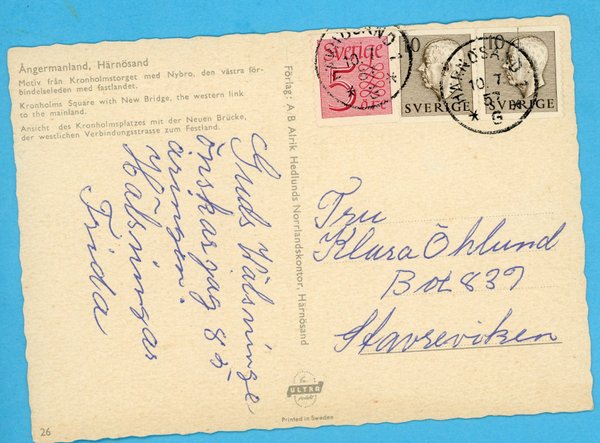 Ångermanland, Härnösand
Motiv från Kronholmstorget med Nybro, den västra för-
bindelseleden med fastlandet.
Kronholms Square with New Bridge, the western link
to the mainland.
Ansicht des Kronholmsplatzes mit der Neuen Brücke,
der westlichen Verbindungsstrasse zum Festland.
Guds Hälsninge
önskar jag 85
åringen.
Hälsningar
Frida
26
Förlag: A B Alrik Hedlunds Norrlandskontor, Härnösand
Sverige
5
10
SVERIGE
10
SVERIGE
HÄRNÖSAND
10 1
HÄRNÖSAND
10 1
57
* G
Fru
Klara Öhlund
Box 839
Stavreviken
ULTRA
Printed in Sweden